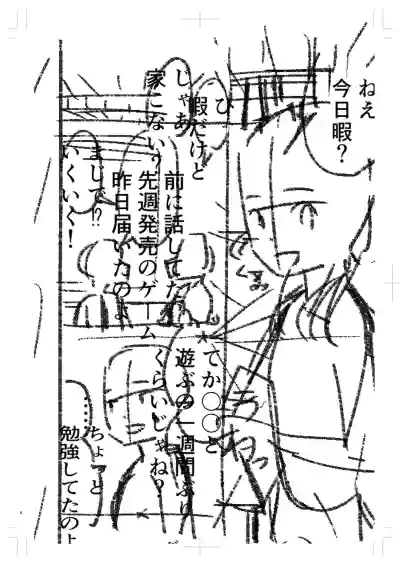 ねえ
今日暇？
び
暇だけど
じゃあ
家こない？
前に話してた
先週発売のゲーム
昨日届いたのよ
まじで!?
いくいく！
てか○○と
遊ぶの一週間ぶり
くらいじゃね？
……ちょっと
勉強してたのよ